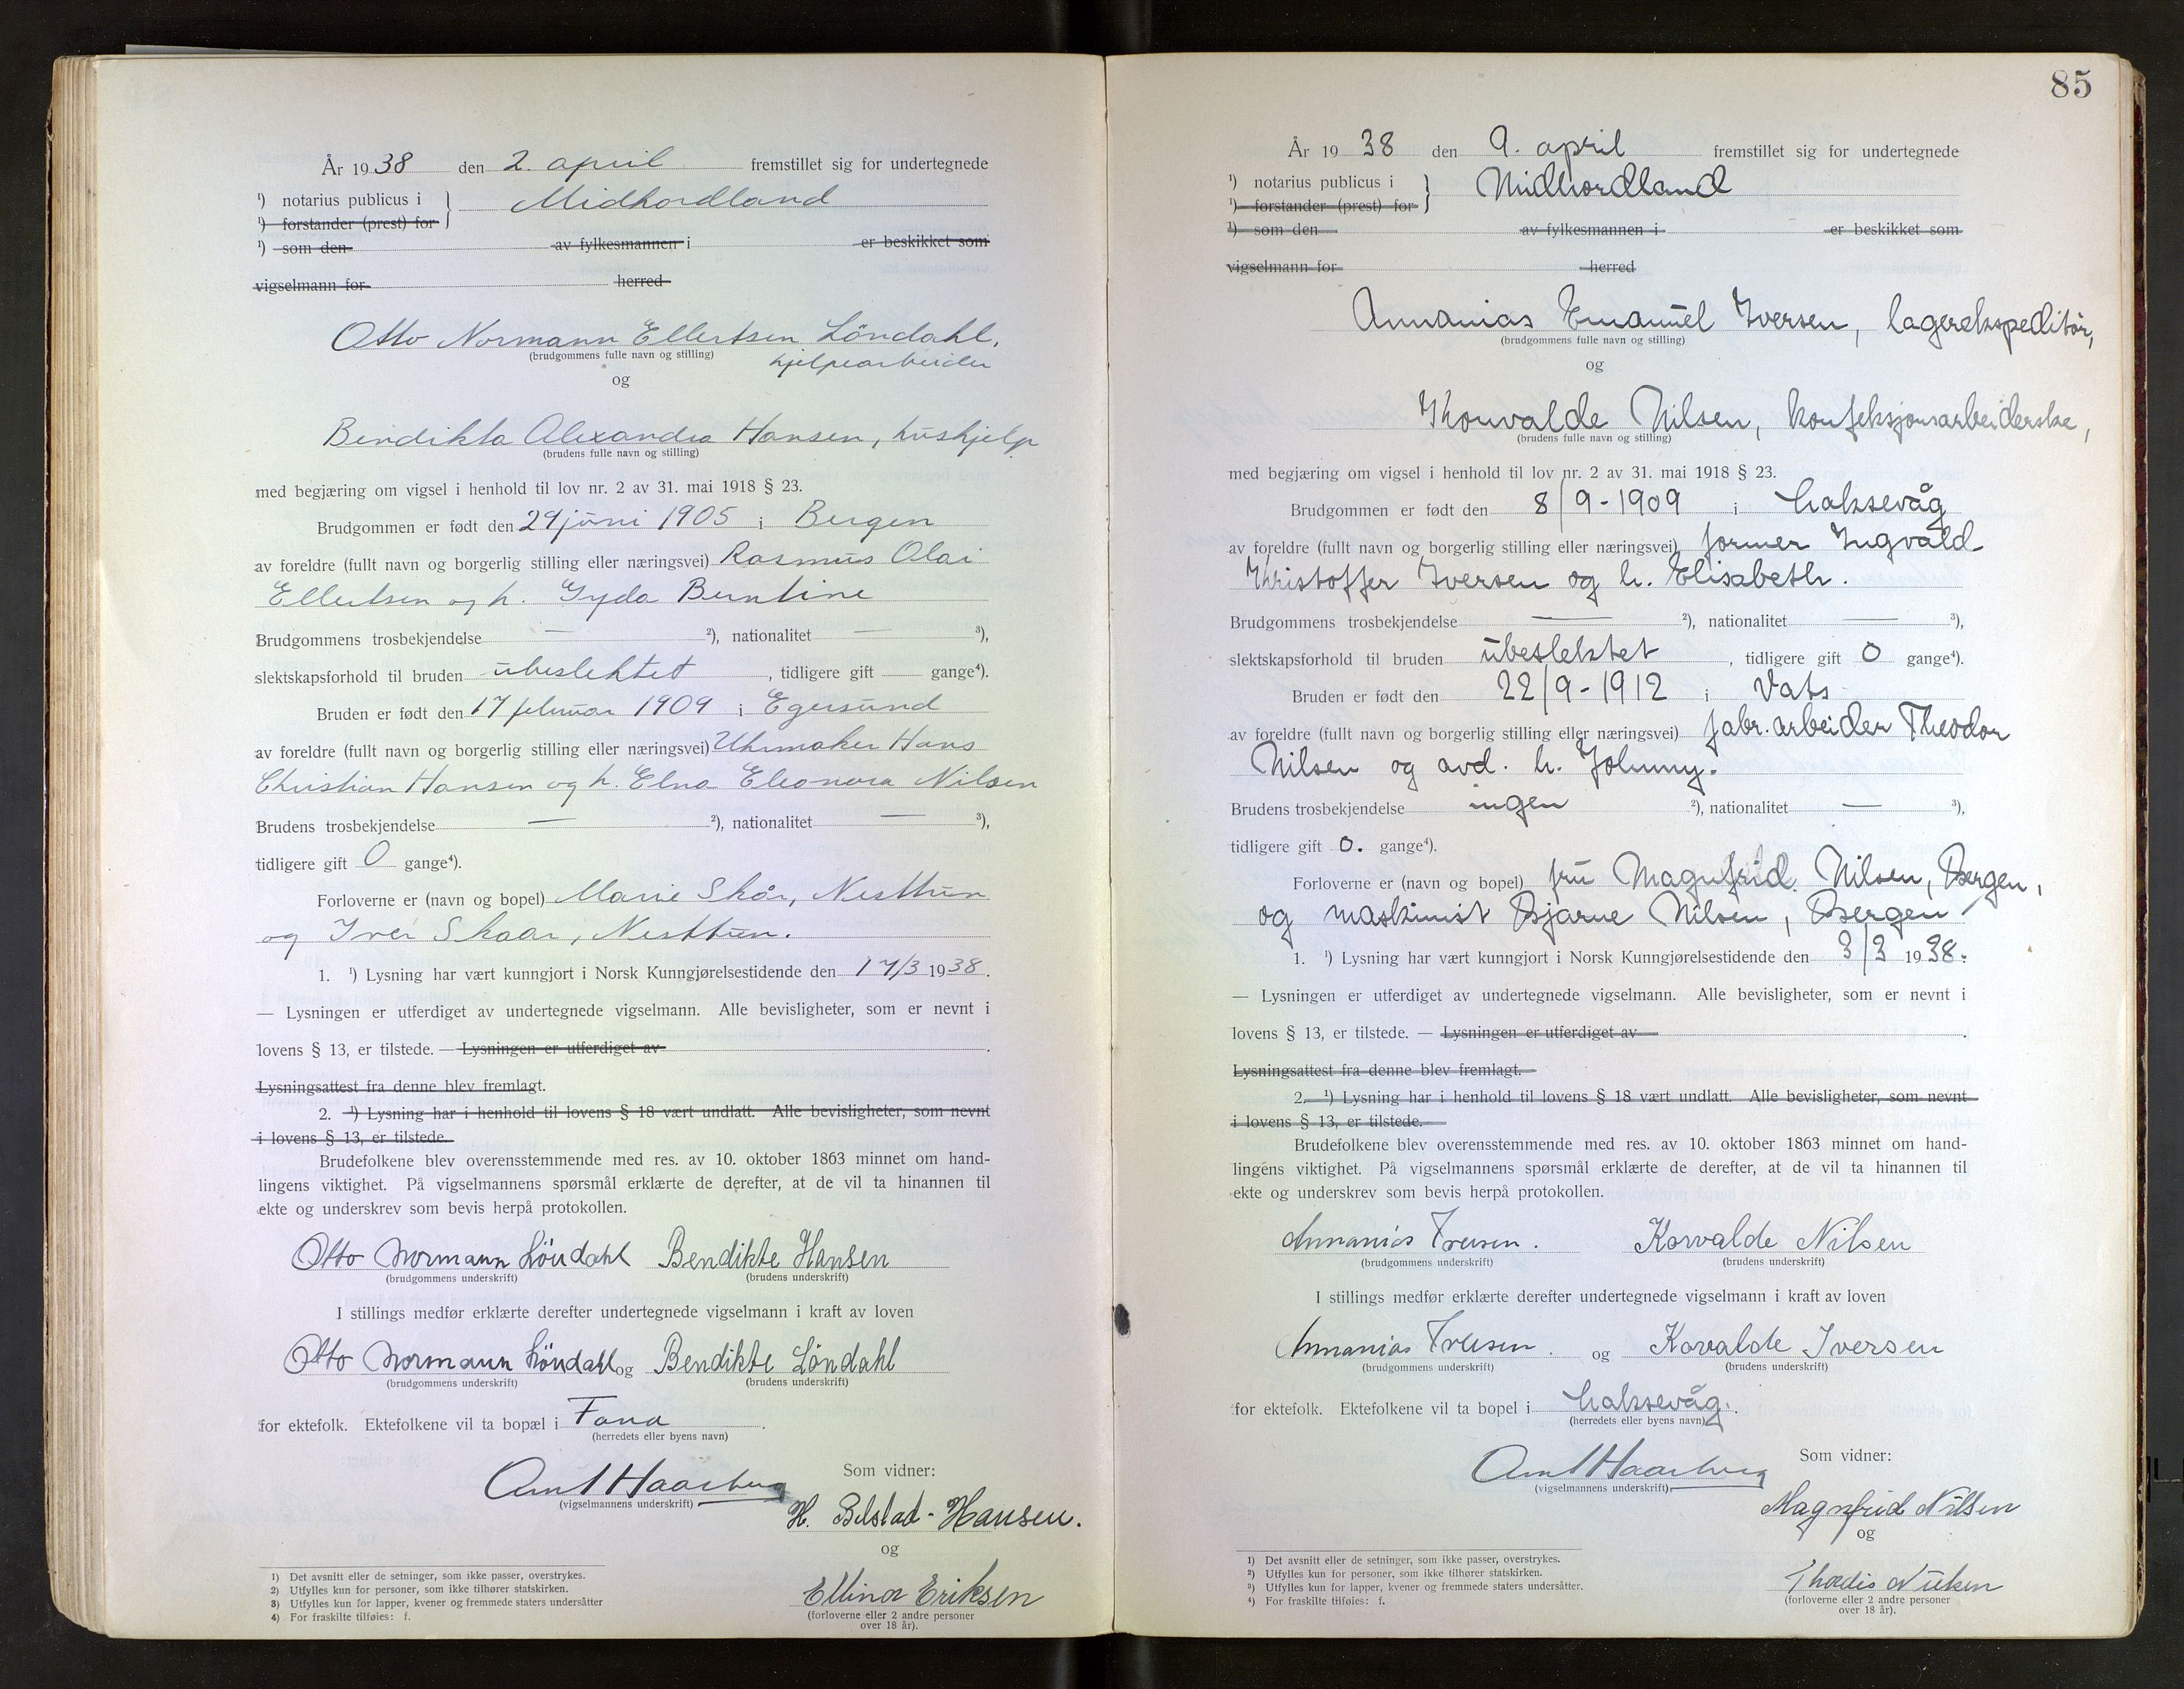 År 1938 den 2. april fremstillet sig for undertegnede
¹) notarius publicus i } Midhordland
¹) forstander (prest) for
¹) som den av fylkesmannen i er beskikket som
vigselmann for herred
Otto Normann Ellertsen Löndahl,
(brudgommens fulle navn og stilling) hjelpearbeider
og
Bendikta Alexandra Hansen, hushjelp
(brudens fulle navn og stilling)
med begjæring om vigsel i henhold til lov nr. 2 av 31. mai 1918 § 23.
Brudgommen er født den 29 juni 1905 i Bergen
av foreldre (fullt navn og borgerlig stilling eller næringsvei) Rasmus Olai
Ellertsen og h. Gyda Berntine
Brudgommens trosbekjendelse — ²), nationalitet — ³),
slektskapsforhold til bruden ubeslektet, tidligere gift gange⁴).
Bruden er født den 17 februar 1909 i Egersund
av foreldre (fullt navn og borgerlig stilling eller næringsvei) Uhrmaker Hans
Christian Hansen og h. Elna Eleonora Nilsen
Brudens trosbekjendelse — ²), nationalitet — ³),
tidligere gift 0 gange⁴).
Forloverne er (navn og bopel) Marie Skår, Nesttun
og Iver Skaar, Nesttun.
1. ¹) Lysning har vært kunngjort i Norsk Kunngjørelsestidende den 17/3 1938.
— Lysningen er utferdiget av undertegnede vigselmann. Alle bevisligheter, som er nevnt i
lovens § 13, er tilstede. — Lysningen er utferdiget av .
Lysningsattest fra denne blev fremlagt.
2. ¹) Lysning har i henhold til lovens § 18 vært undlatt. Alle bevisligheter, som nevnt
i lovens § 13, er tilstede.
Brudefolkene blev overensstemmende med res. av 10. oktober 1863 minnet om hand-
lingens viktighet. På vigselmannens spørsmål erklærte de derefter, at de vil ta hinannen til
ekte og underskrev som bevis herpå protokollen.
Otto Normann Löndahl Bendikte Hansen
(brudgommens underskrift) (brudens underskrift)
I stillings medfør erklærte derefter undertegnede vigselmann i kraft av loven
Otto Normann Löndahl og Bendikte Löndahl
(brudgommens underskrift) (brudens underskrift)
for ektefolk. Ektefolkene vil ta bopæl i Fana.
(herredets eller byens navn)
Som vidner:
Arnt Haarberg
(vigselmannens underskrift)
H. Belstad-Hansen.
og
Ellinor Eriksen
(forloverne eller 2 andre personer
over 18 år).
1) Det avsnitt eller de setninger, som ikke passer, overstrykes.
2) Utfylles kun for personer, som ikke tilhører statskirken.
3) Utfylles kun for lapper, kvener og fremmede staters undersåtter
4) For fraskilte tilføies: f.
85
År 1938 den 9. april fremstillet sig for undertegnede
¹) notarius publicus i } Midhordland
¹) forstander (prest) for
¹) som den av fylkesmannen i er beskikket som
vigselmann for herred
Annanias Emanuel Iversen, lagerekspeditör,
(brudgommens fulle navn og stilling)
og
Thorvalde Nilsen, konfeksjonsarbeiderske,
(brudens fulle navn og stilling)
med begjæring om vigsel i henhold til lov nr. 2 av 31. mai 1918 § 23.
Brudgommen er født den 8/9-1909 i Laksevåg
av foreldre (fullt navn og borgerlig stilling eller næringsvei) former Ingvald
Kristoffer Iversen og h. Elisabeth.
Brudgommens trosbekjendelse — ²), nationalitet — ³),
slektskapsforhold til bruden ubeslektet, tidligere gift 0 gange⁴).
Bruden er født den 22/9-1912 i Vats
av foreldre (fullt navn og borgerlig stilling eller næringsvei) fabr.arbeider Theodor
Nilsen og avd. h. Johnny.
Brudens trosbekjendelse ingen ²), nationalitet — ³),
tidligere gift 0. gange⁴).
Forloverne er (navn og bopel) fru Magnfrid Nilsen, Bergen,
og maskinist Bjarne Nilsen, Bergen
1. ¹) Lysning har vært kunngjort i Norsk Kunngjørelsestidende den 3/3 1938.
— Lysningen er utferdiget av undertegnede vigselmann. Alle bevisligheter, som er nevnt i
lovens § 13, er tilstede. — Lysningen er utferdiget av .
Lysningsattest fra denne blev fremlagt.
2. ¹) Lysning har i henhold til lovens § 18 vært undlatt. Alle bevisligheter, som nevnt
i lovens § 13, er tilstede.
Brudefolkene blev overensstemmende med res. av 10. oktober 1863 minnet om hand-
lingens viktighet. På vigselmannens spørsmål erklærte de derefter, at de vil ta hinannen til
ekte og underskrev som bevis herpå protokollen.
Annanias Iversen. Korvalde Nilsen
(brudgommens underskrift) (brudens underskrift)
I stillings medfør erklærte derefter undertegnede vigselmann i kraft av loven
Annanias Iversen. og Korvalde Iversen
(brudgommens underskrift) (brudens underskrift)
for ektefolk. Ektefolkene vil ta bopel i Laksevåg.
(herredets eller byens navn)
Som vidner:
Arnt Haarberg
(vigselmannens underskrift)
Magnfrid Nilsen
og
Thordis Nilsen
(forloverne eller 2 andre personer
over 18 år).
¹) Det avsnitt eller de setninger, som ikke passer, overstrykes.
²) Utfylles kun for personer, som ikke tilhører statskirken.
³) Utfylles kun for lapper, kvener og fremmede staters undersåtter.
⁴) For fraskilte tilføies: f.